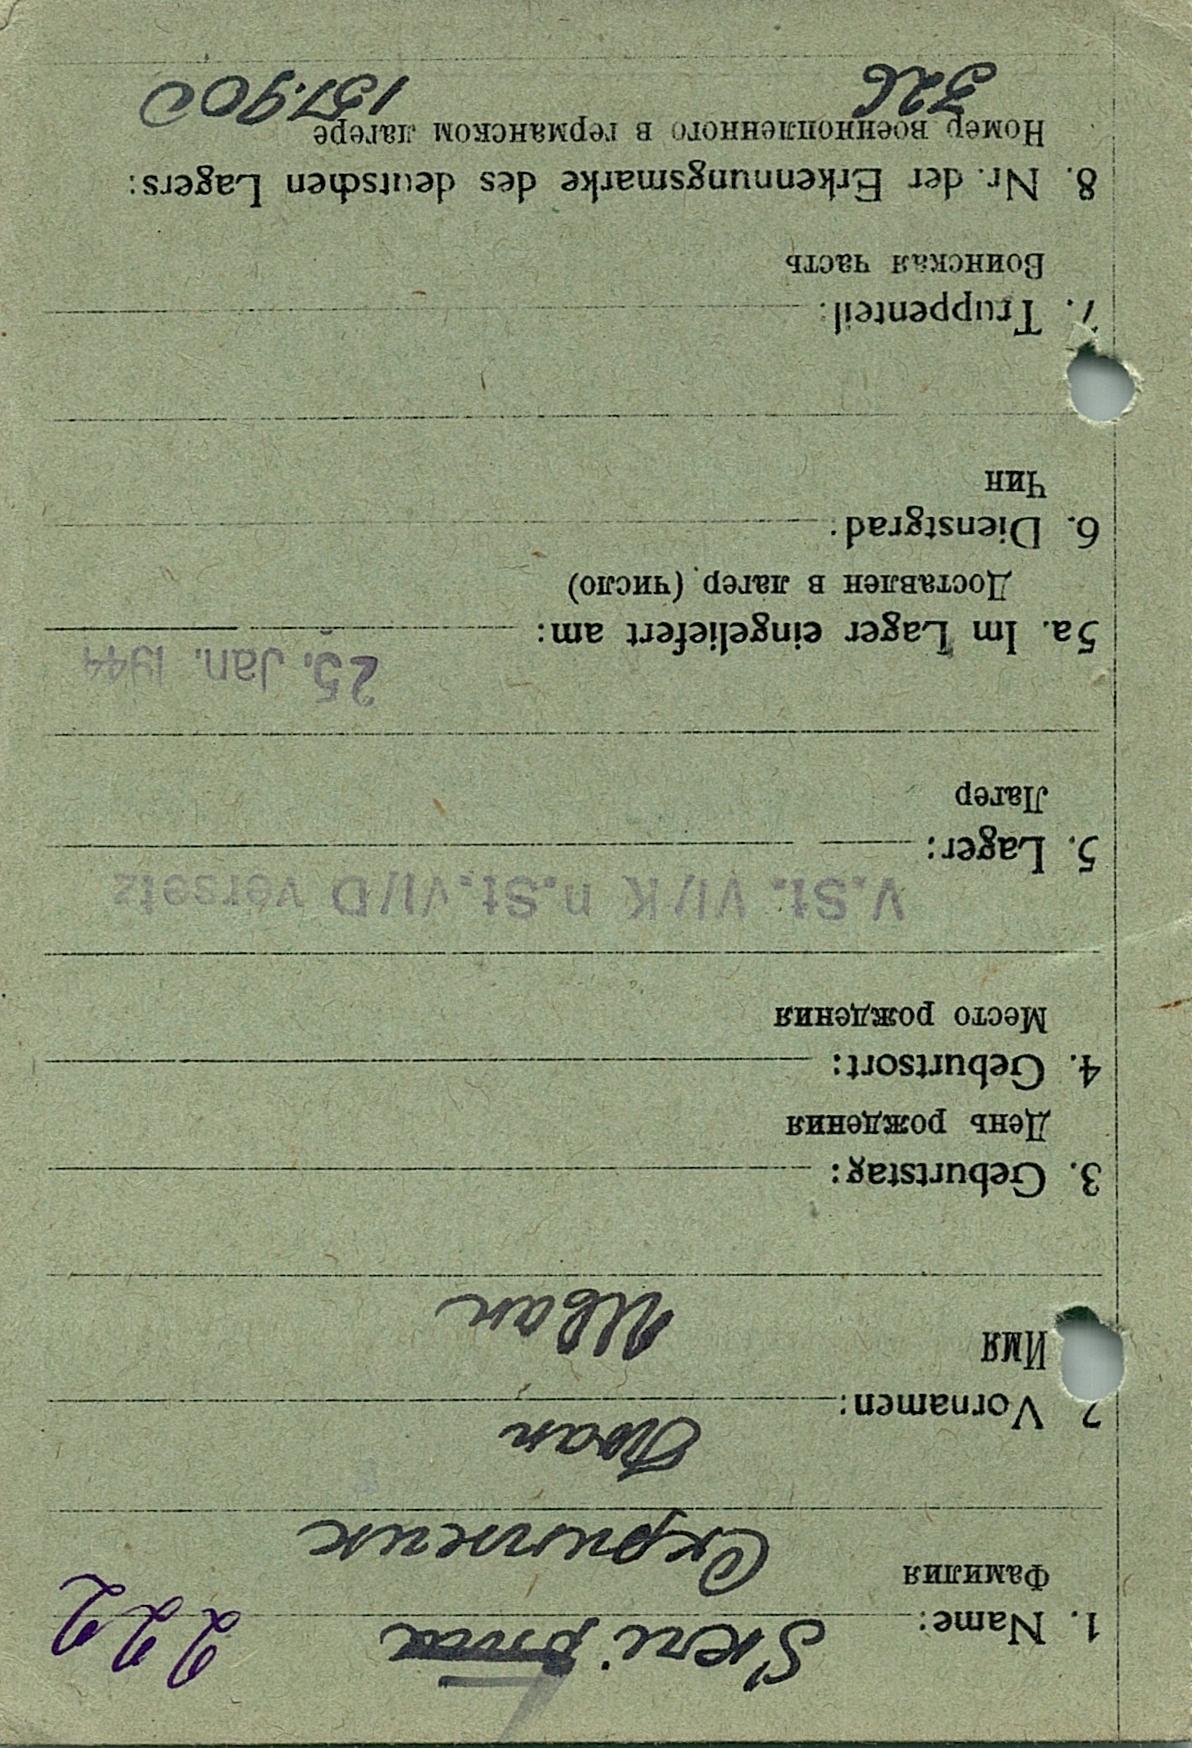 222
1. Name: Skri
Фамилия
Скрипник
2. Vornamen: Iwan
Имя
Иван
3. Geburtstag:
День рождения
4. Geburtsort:
Место рождения
V. St. VI/K n. St. VI/D versetz
5. Lager:
Лагер
25. Jan. 1944
5a. Im Lager eingeliefert am:
Доставлен в лагер (число)
6. Dienstgrad:
Чин
7. Truppenteil:
Воинская часть
8. Nr. der Erkennungsmarke des deutschen Lagers:
Номер военнопленного в германском лагере
326 157.900